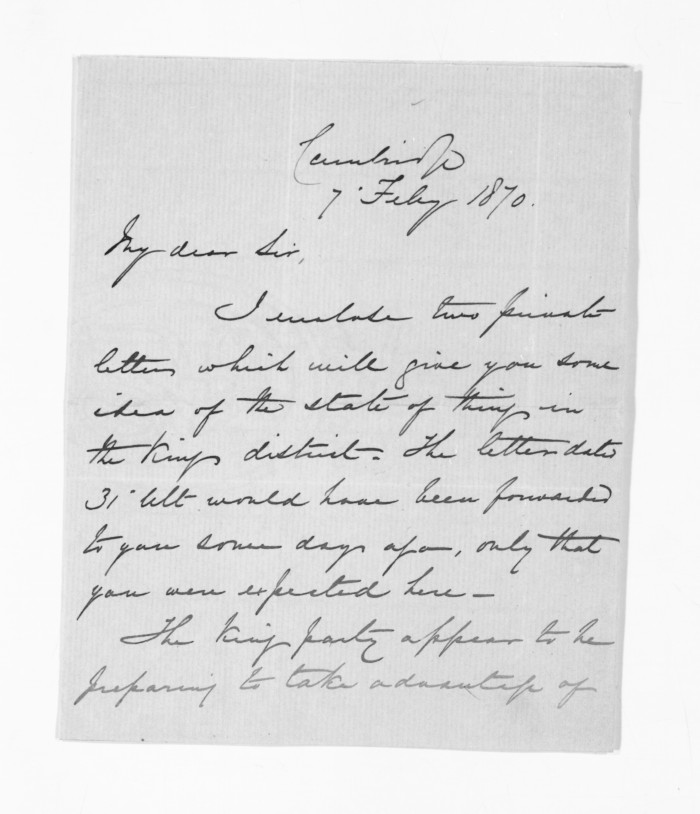 Cambridge
7' Feby 1870.
My dear Sir,
I enclose two private
letters which will give you some
idea of the state of things in
the Kings district. The letter dated
31' Ult would have been forwarded
to you some days ago, only that
you were expected here -
The King party appear to be
preparing to take advantage of